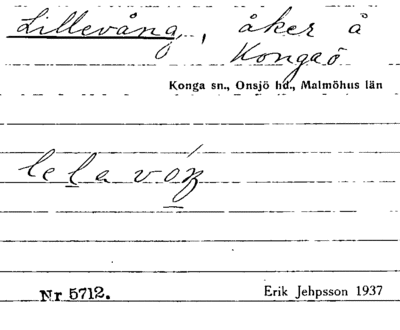 Lillevång, åker å
Kongaö
Konga sn., Onsjö hd., Malmöhus län
le la vóŋ
Nr 5712.
Erik Jehpsson 1937